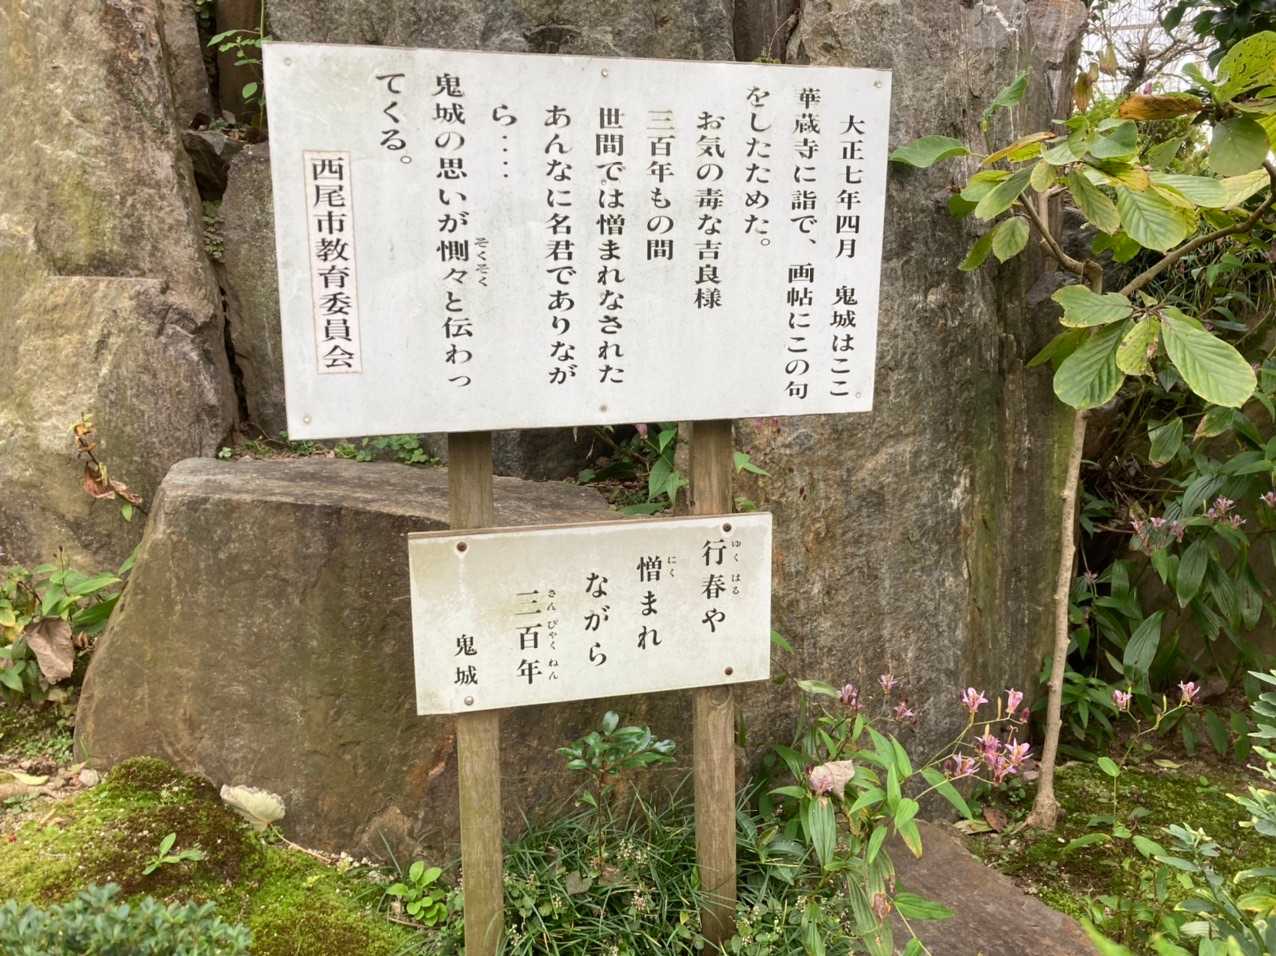 大正七年四月　鬼城はここ
華蔵寺に詣で、画帖にこの句
をしたためた。
お気の毒な吉良様
三百年もの間
世間では憎まれなされた
あんなに名君でありなが
ら‥‥
鬼城の思いが惻々と伝わっ
そくそく
てくる。
西尾市教育委員会
行春や
ゆくはる
憎まれ
にく
ながら
三百年
さんびゃくねん
鬼城